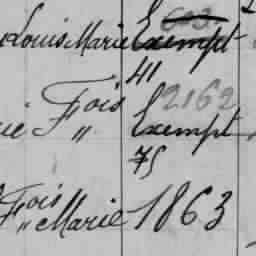 Louis Marie Exempt
41
Fois 2162
ie „ Exempt
75
Fois
„ Marie 1863